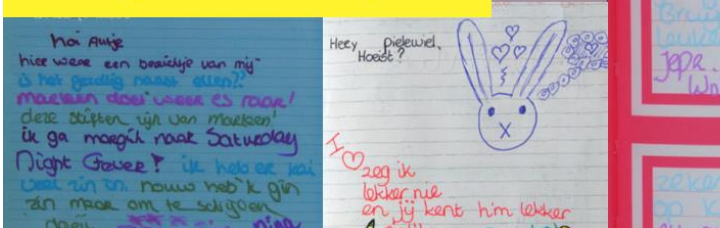 hoi Autje
hier weer een berichtje van mij
is het gezellig naast ellen??
marleen doet weer es raar!
deze stiften zijn van marleen!
ik ga morgen naar Saturday
Night Fever! ik heb er kei
veel zin in. nouw heb 'k gin
zin meer om te schrijven
doeii
nina
Heey pielewiel.
Hoeist?
I
zeg ik
lekker nie
en jij kent him lekker
Jepa.
zeker
op